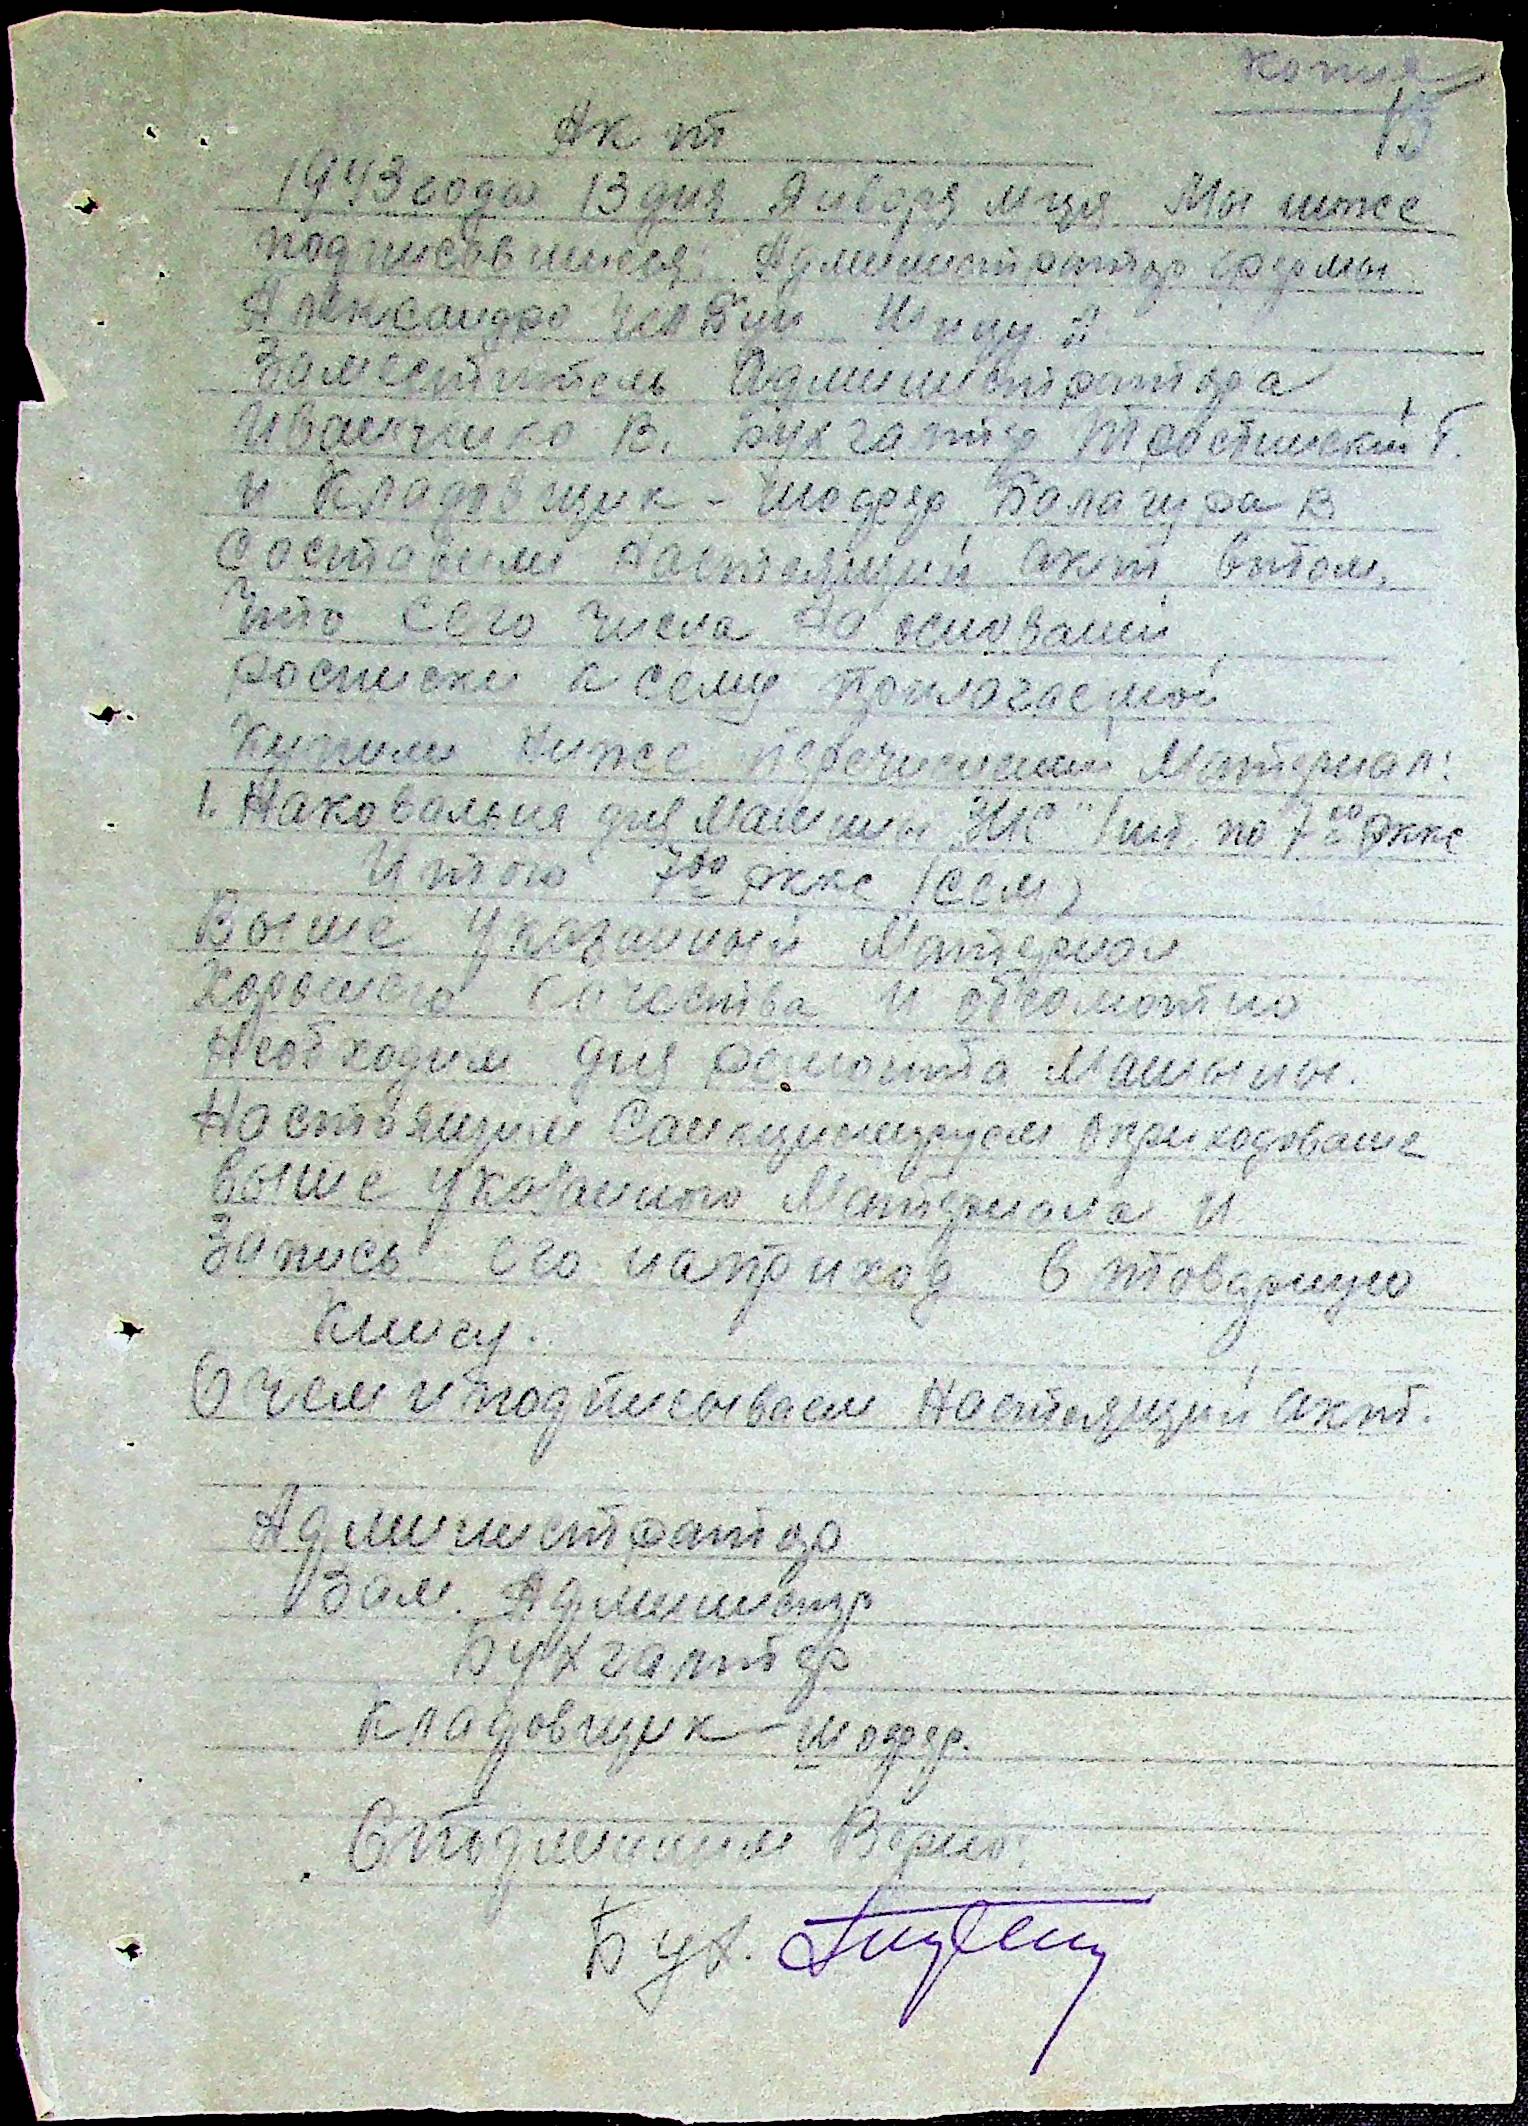 копия
15
Акт
1943 года 13 дня Января м-ця Мы ниже
подписовшиеся: Администратор фермы
Александро
Заместитель Администратора
Иванчико В. Бухгалтер Тростинский Г.
и Кладовщик - шофер Балагура В
Составили настоящий акт втом,
Что сего числа на основании
росписки к сему прилагаемой
Купили ниже перечислений Материал:
1. Наковальня для Машины „ЗИС" 1 шт. по 7 00 рккс
Итого 7 00 рккс (сем)
Выше указанный Материал
Хорошего качества и
Необходим для ремонта Машыны.
Настоящим Санкционируем оприходование
выше указанного Материала и
Запись его наприход в товарную
Книгу.
О чем и подписываем Настоящий акт.
Администратор
Зам. Администр
Бухгалтер
Кладовщик - шофер.
Сподлинным Верно:
Бух.